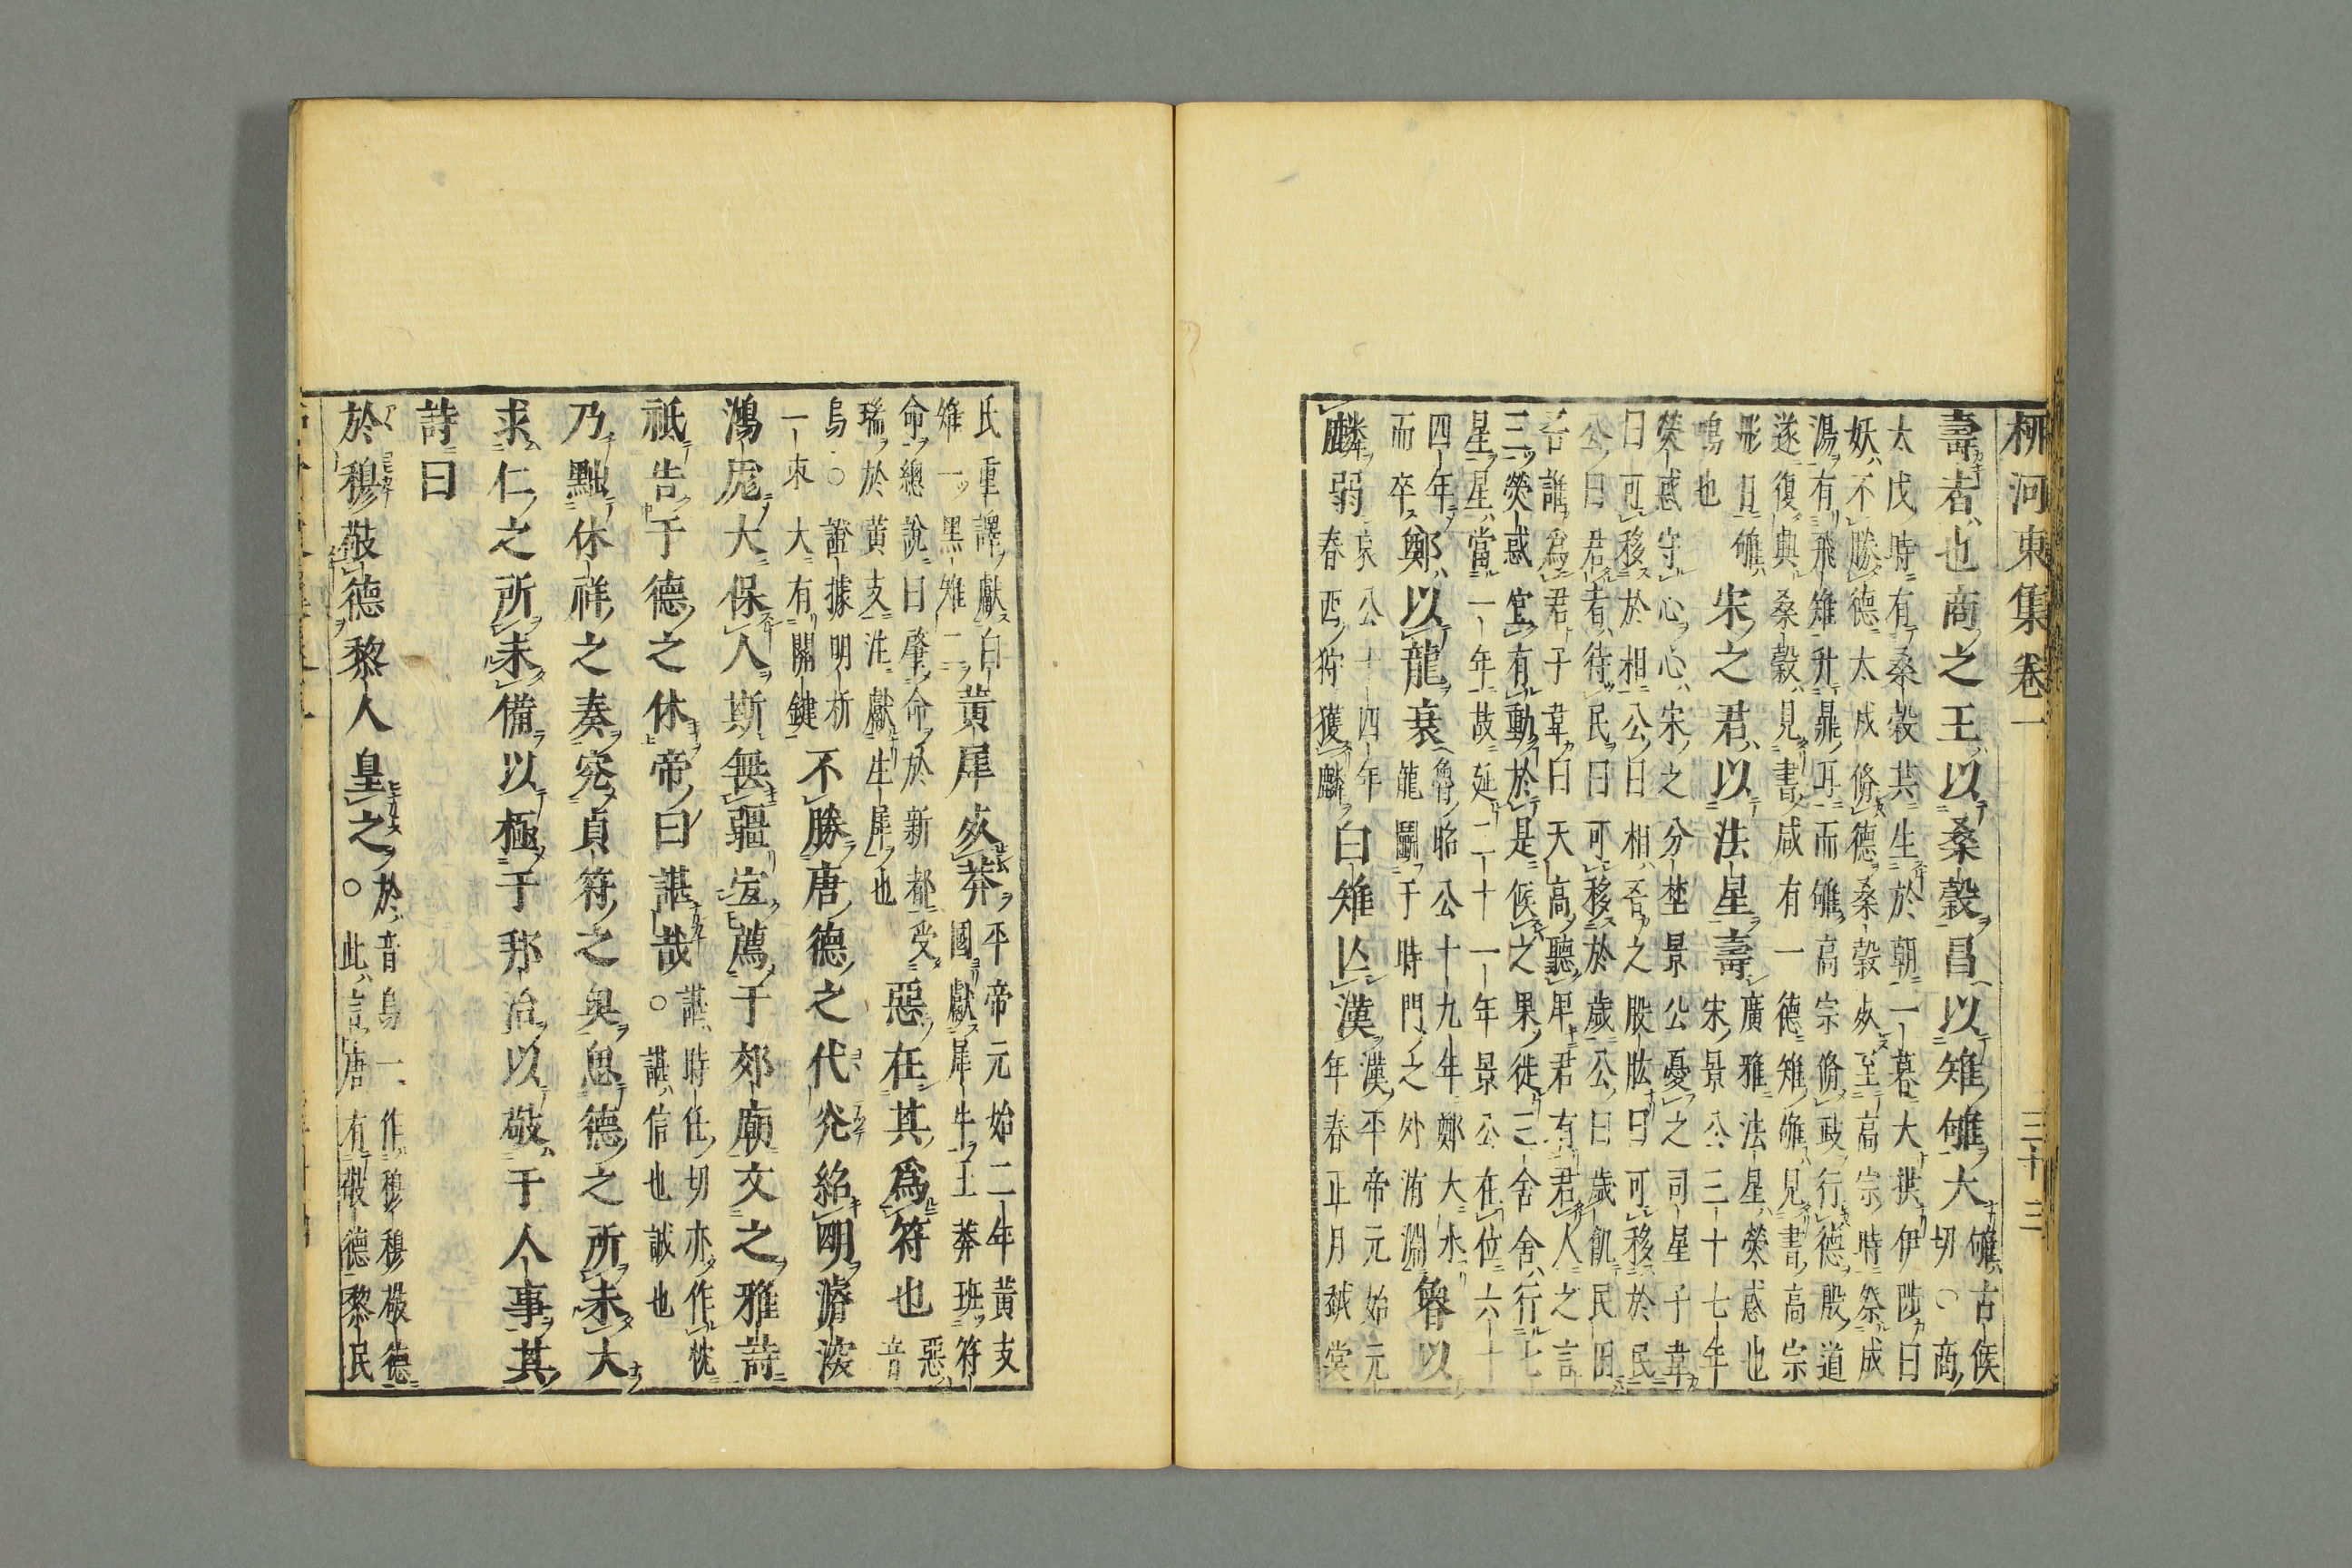 柳河東集 卷一 三十三
壽者也商之王以桑穀昌以雉雊大
雊古候
切○商
太戊時有桑穀共生於朝一暮大拱伊陟曰
妖不勝德太戊脩德桑穀死至高宗時祭成
湯有飛雉升鼎耳而雊高宗脩政行德殷道
遂復興桑穀見書咸有一德雉雊見書高宗
肜日雊
鳴也
宋之君以法星壽
廣雅法星熒惑也
宋景公三十七年
熒惑守心心宋之分埜景公憂之司星子韋
曰可移於相公曰相吾之股肱曰可移於民
公曰君者待民曰可移於歲公曰歲飢民困
吾誰爲君子韋曰天高聽卑君有君人之言
三熒惑宜有動於是候之果徙三舍舍行七
星星當一年故延二十一年景公在位六十
四年
而卒
鄭以龍衰
魯昭公十九年鄭大水
龍鬭于時門之外洧淵
魯以
麟弱
哀公十四年
春西狩獲麟
白雉亡漢
漢平帝元始元
年春正月越裳
氏重譯獻白
雉一黑雉二
黃犀死莽
平帝元始二年黃支
國獻犀牛王莽班符
命總說曰肇命於新都受
瑞於黃支注獻生犀也
惡在其爲符也
惡
音
烏○證據明析
一束大有關鍵
不勝唐德之代光紹明濬深
鴻厖大保人斯無疆宜薦于郊廟文之雅詩
祇告于德之休帝曰諶哉○
諶時任切亦作忱
諶信也誠也
乃黜休祥之奏究貞符之奧思德之所未大
求仁之所未備以極于邦治以敬于人事其
詩曰
於穆敬德黎人皇之○
於音烏一作穆穆敬德
此言唐有敬德黎民